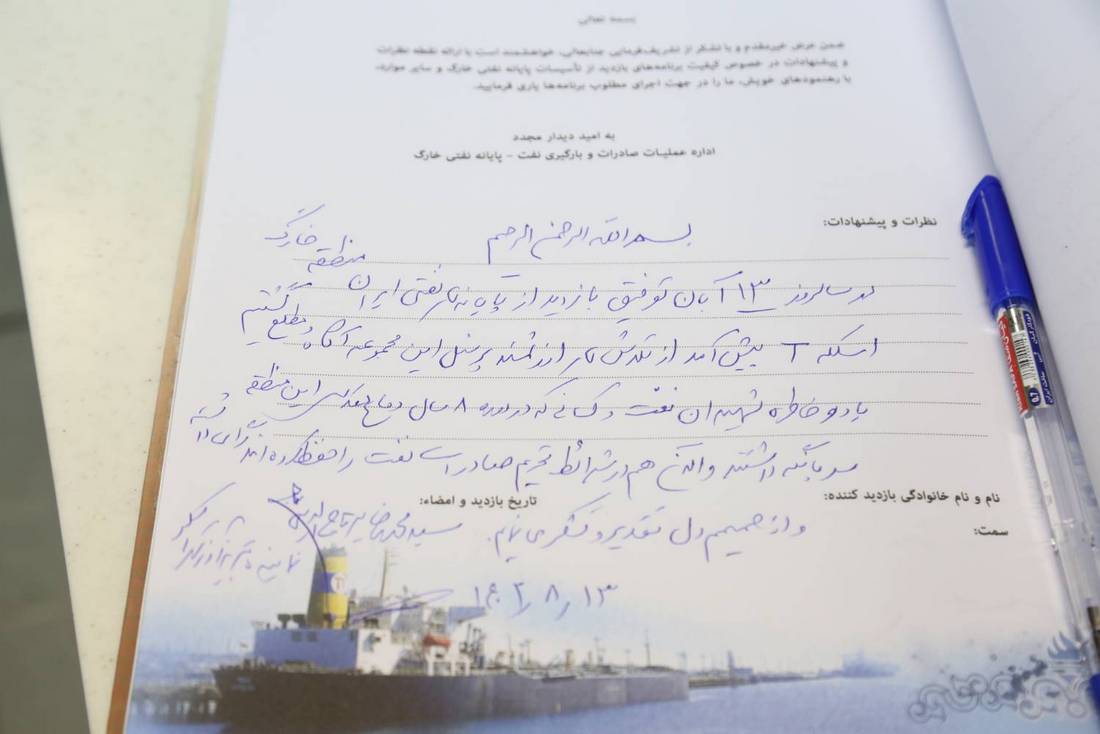 بسمه تعالی
ضمن عرض خیرمقدم و با تشکر از تشریف‌فرمایی جنابعالی، خواهشمند است با ارائه نقطه نظرات
و پیشنهادات در خصوص کیفیت برنامه‌های بازدید از تأسیسات پایانه نفتی خارگ و سایر موارد،
با رهنمودهای خویش، ما را در جهت اجرای مطلوب برنامه‌ها یاری فرمایید.
به امید دیدار مجدد
اداره عملیات صادرات و بارگیری نفت - پایانه نفتی خارگ
نظرات و پیشنهادات:
بسم الله الرحمن الرحیم
در سالروز ۱۳ آبان توفیق بازدید از پایانه های نفتی ایران منطقه خارگ
اسکله T پیش آمد از تلاش های ارزشمند پرسنل این مجموعه آگاه و مطلع گشتیم
یاد و خاطره شهیدان نفت و کسانی که در دوره ۸ سال دفاع مقدس این منطقه
سرپا نگه داشتند و الان هم در شرائط تحریم صادرات نفت را حفظ کرده اند گرامی داشته
نام و نام خانوادگی بازدید کننده:
تاریخ بازدید و امضاء:
سمت:
و از صمیم دل تقدیر و تشکر می نمایم.
سید محمدرضا میرتاج الدینی
۱۴۰۲/۸/۱۳